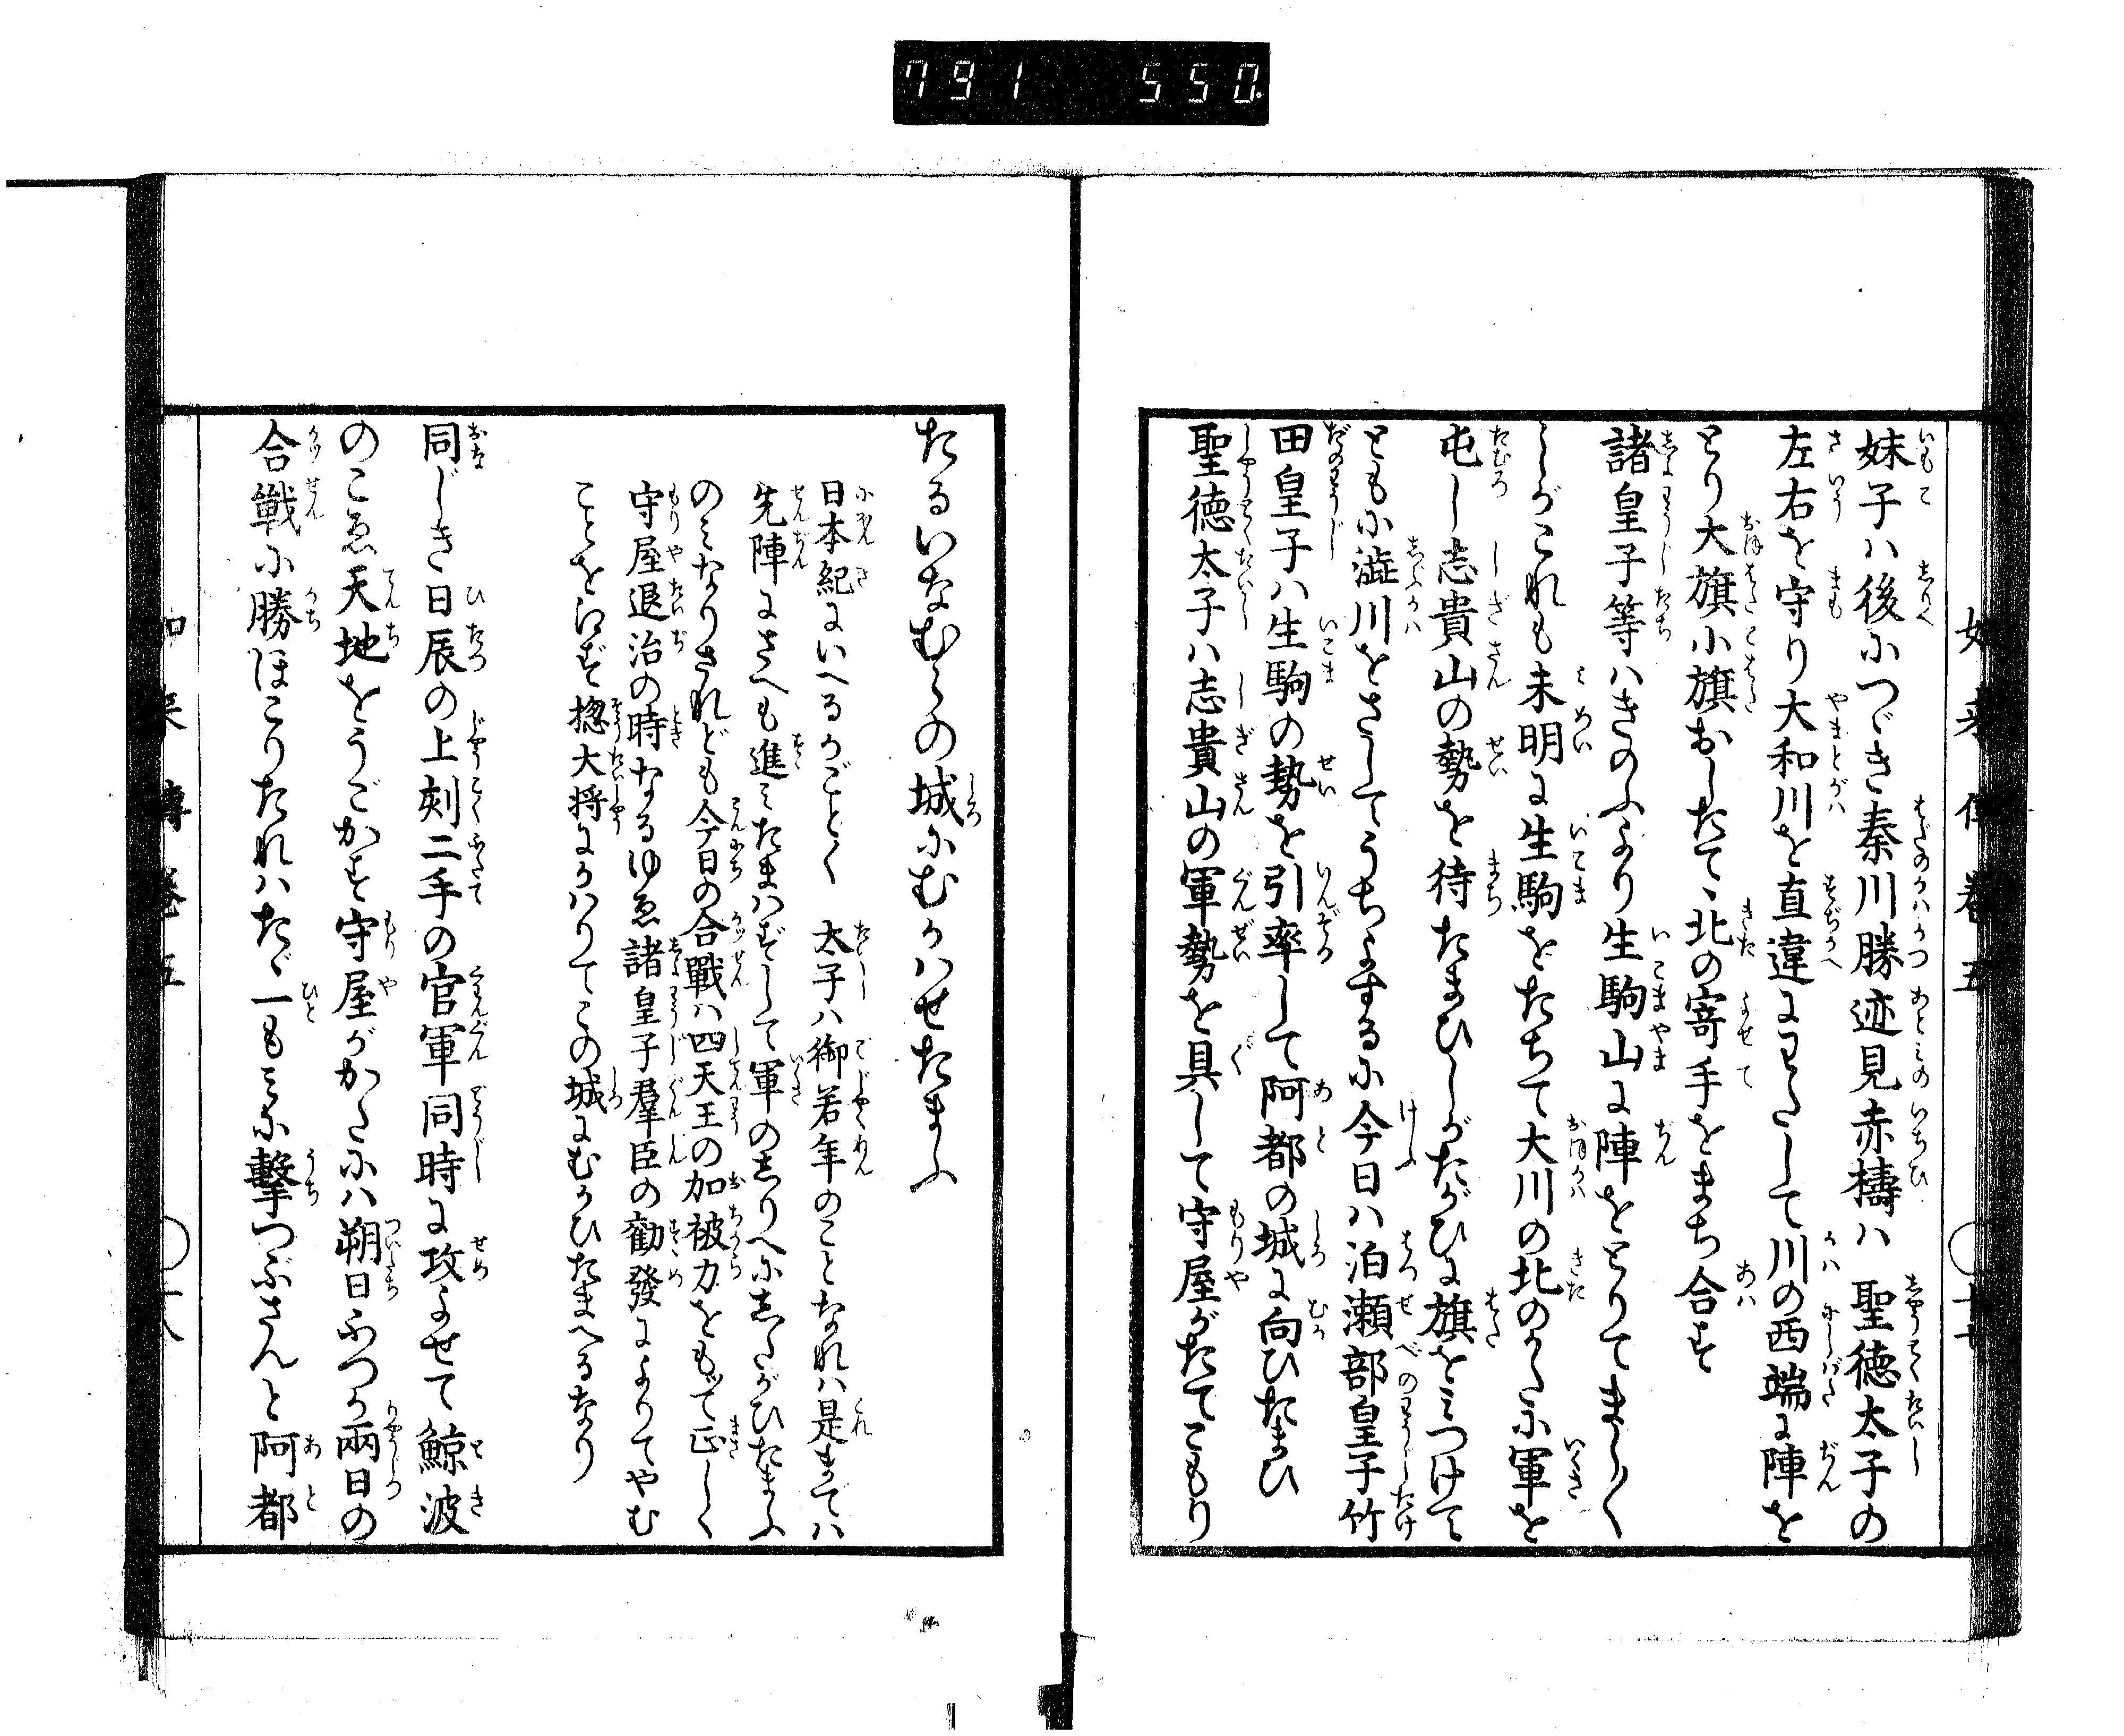 791 550
如来傳巻五
妹子ハ後につゞき秦川勝迹見赤檮ハ 聖徳太子の
左右を守り大和川を直違にわたして川の西端に陣を
とり大旗小旗おしたてゝ北の寄手をまち合す
諸皇子等ハきのふより生駒山に陣をとりてまし〳〵
しがこれも未明に生駒をたちて大川の北のかたに軍を
屯し志貴山の勢を待たまひしがたがひに旗をミつけて
ともに澁川をさしてうちよするに今日ハ泊瀬部皇子竹
田皇子ハ生駒の勢を引率して阿都の城に向ひたまひ
聖徳太子ハ志貴山の軍勢を具して守屋がたてこもり
たるいなむらの城にむかハせたまふ
日本紀にいへるがごとく 太子ハ御若年のことなれハ是までハ
先陣にさへも進ミたまハずして軍のしりへにしたがひたまふ
のミなりされども今日の合戰ハ四天王の加被力をもつて正しく
守屋退治の時なるゆゑ諸皇子羣臣の勧發によりてやむ
ことをえず惣大将にかハりてこの城にむかひたまへるなり
同じき日辰の上刻二手の官軍同時に攻よせて鯨波
のこゑ天地をうごかす守屋がかたにハ朔日ふつか兩日の
合戰に勝ほこりたれハたゞ一もミに撃つぶさんと阿都